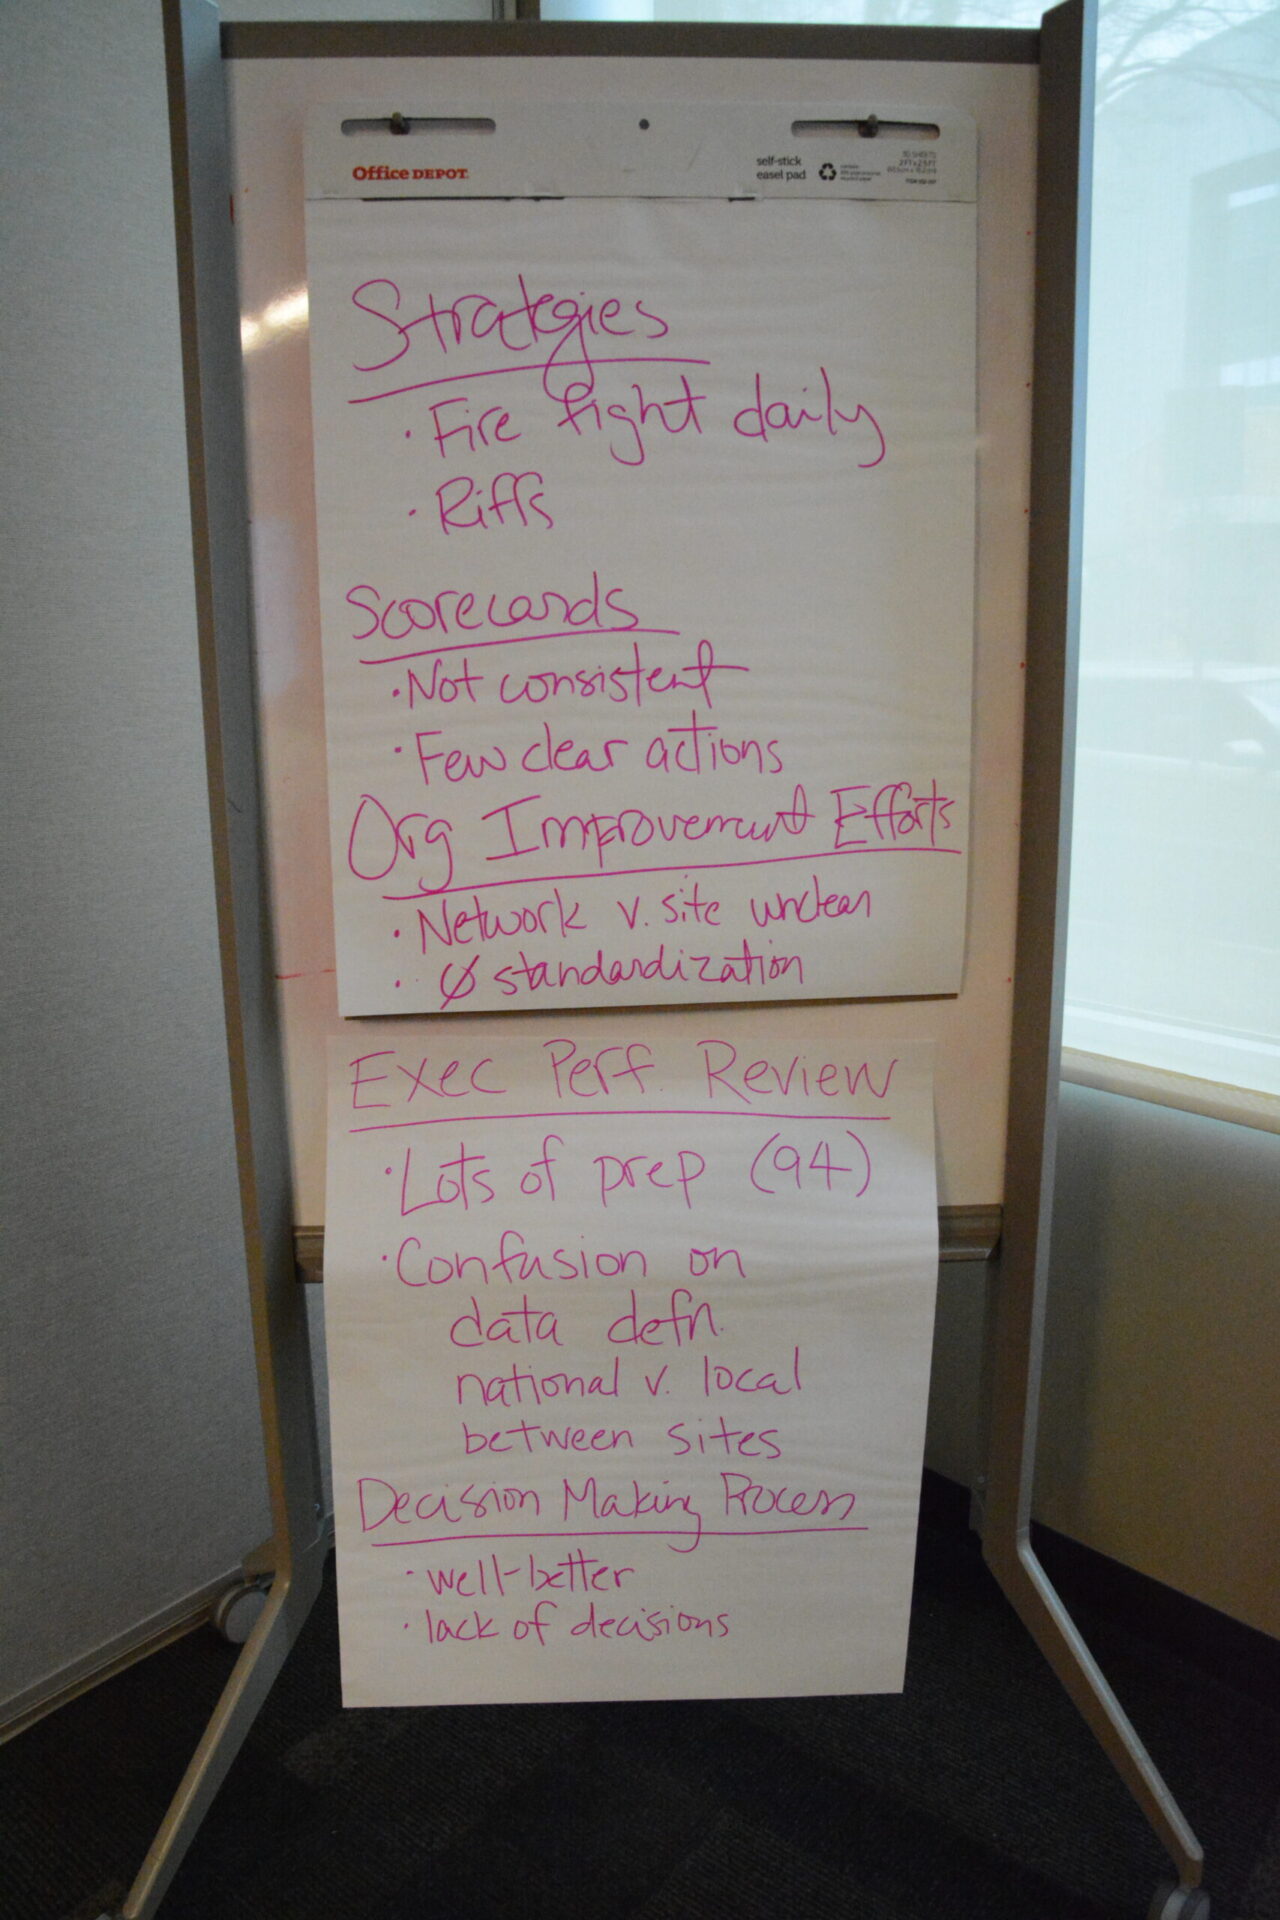 Office DEPOT.
self-stick
easel pad
Strategies
· Fire fight daily
· Riffs
Scorecards
· Not consistent
· Few clear actions
Org Improvement Efforts
· Network v. site unclear
· Ø standardization
Exec Perf. Review
· Lots of prep (94)
· Confusion on
data defn.
national v. local
between sites
Decision Making Process
· well-better
· lack of decisions